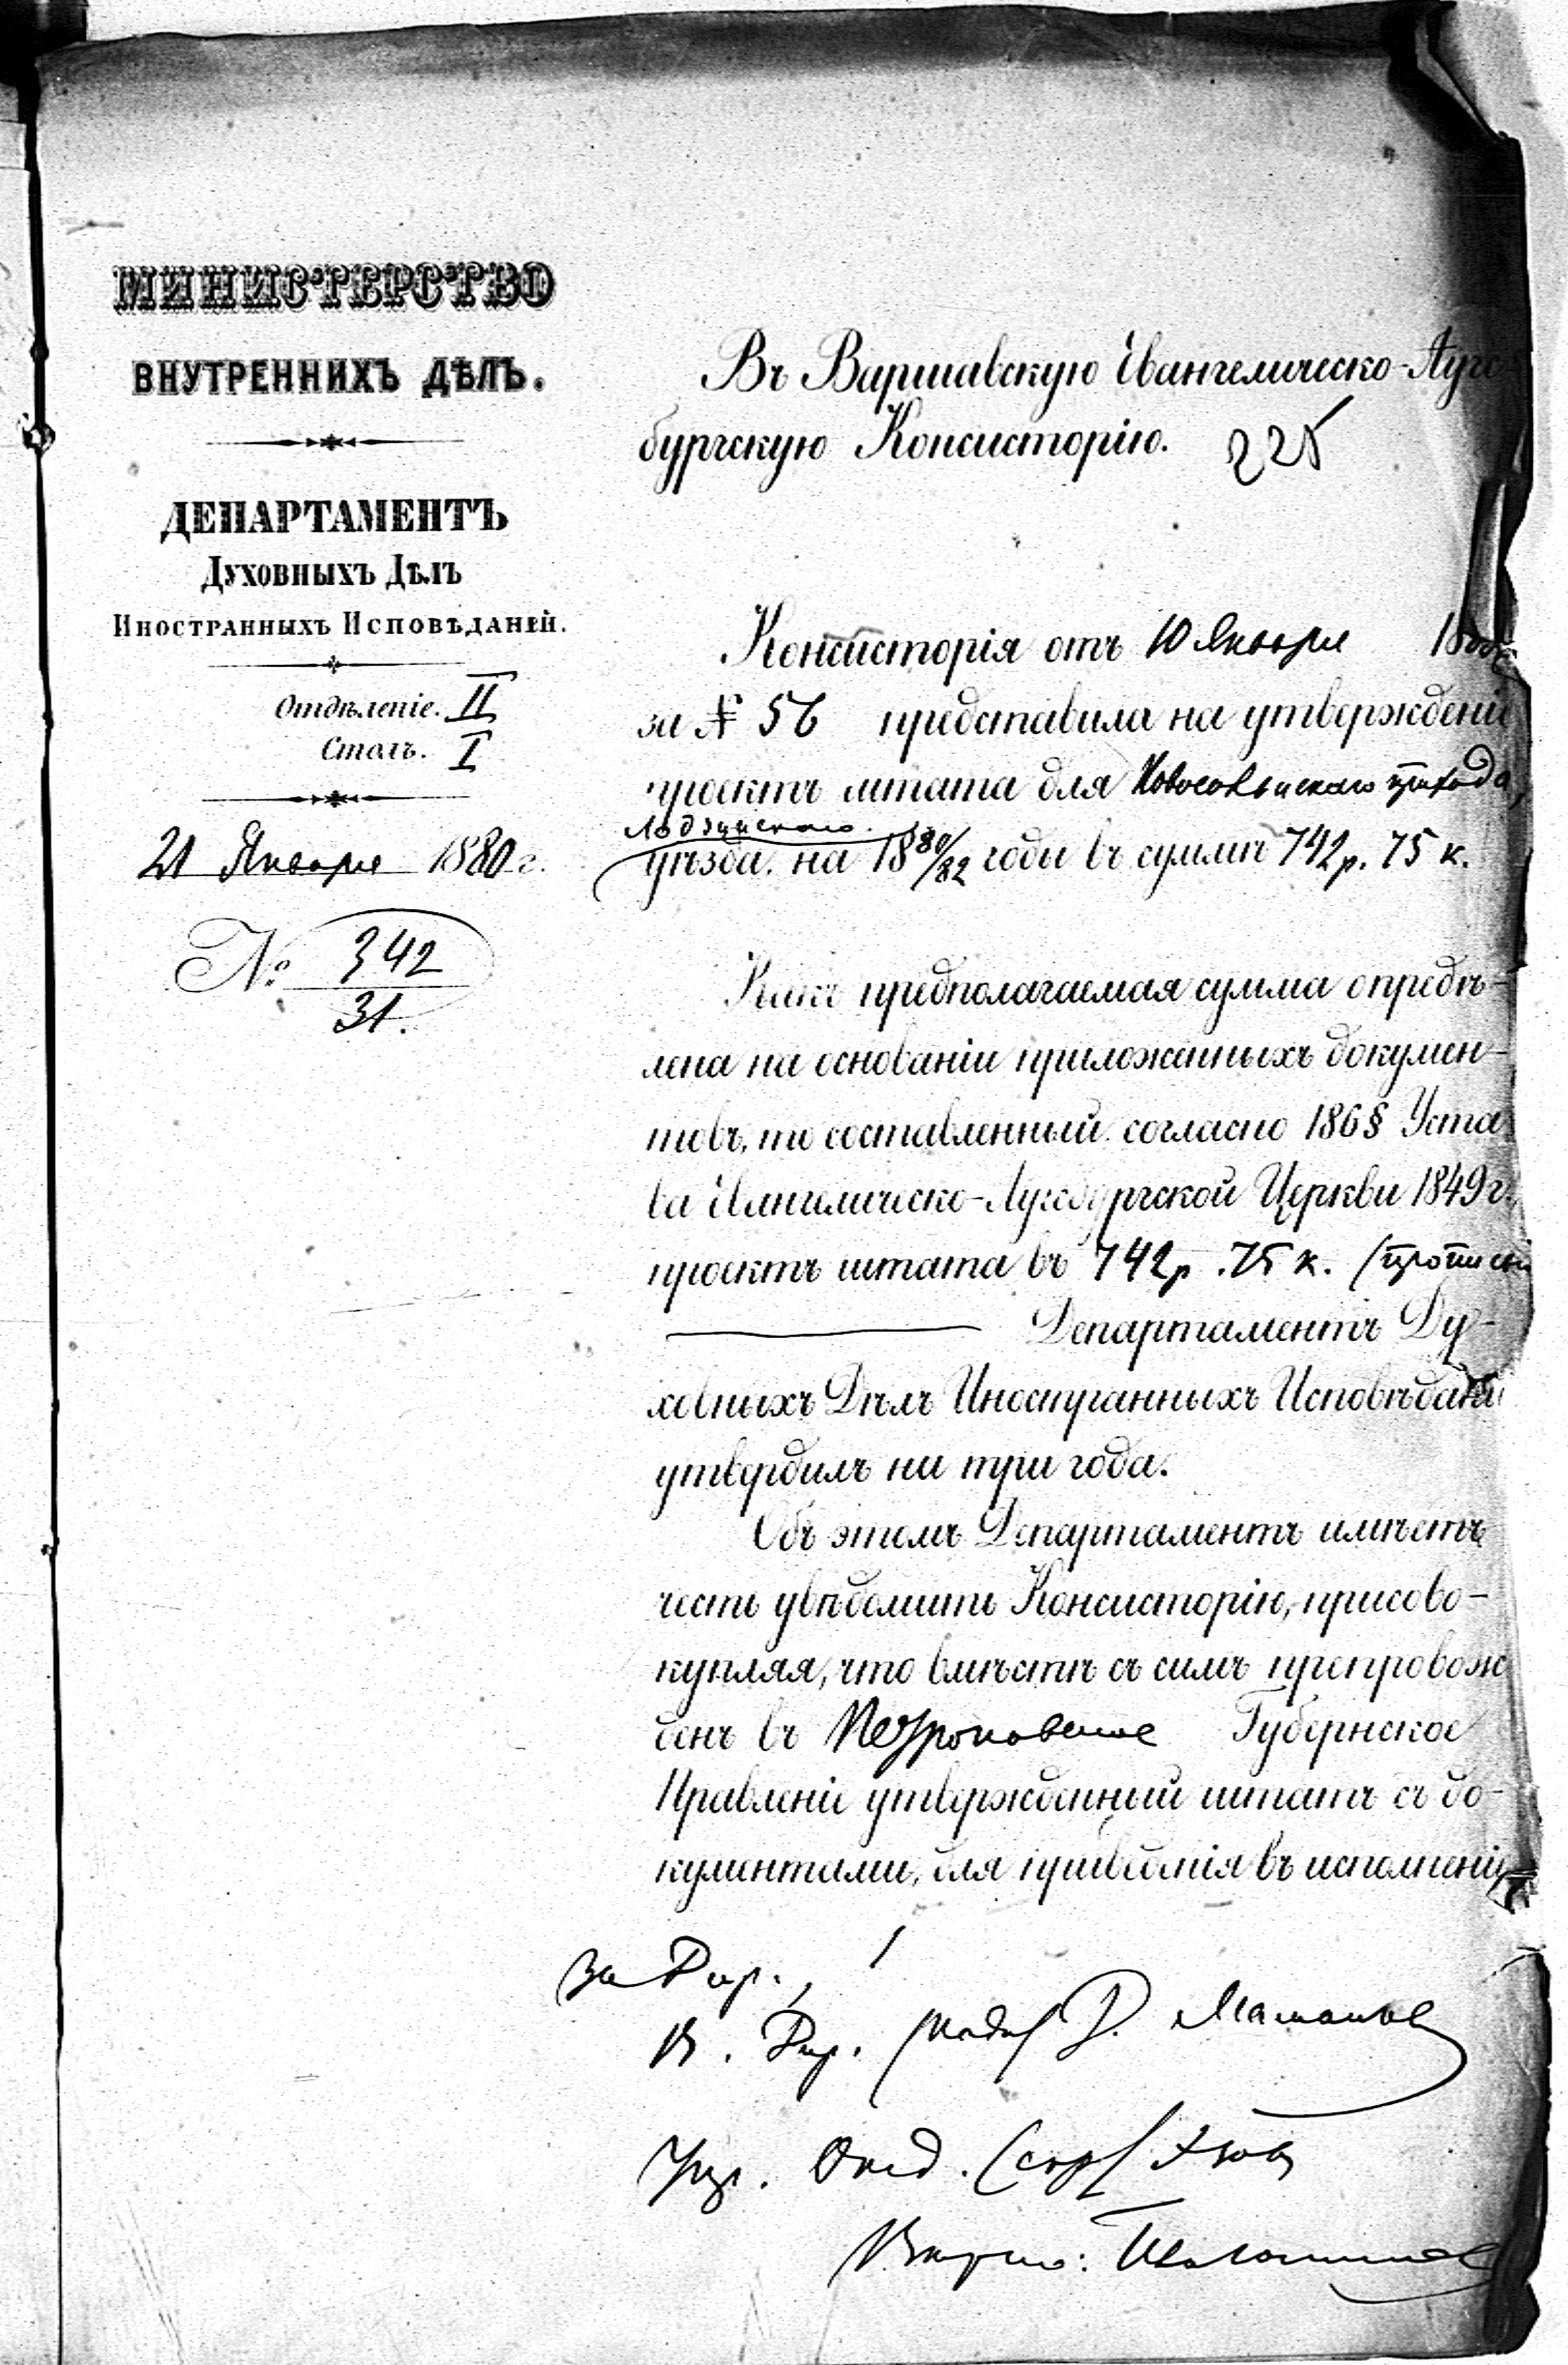 МИНИСТЕРСТВО
ВНУТРЕННИХЪ ДѢЛЪ.
ДЕПАРТАМЕНТЪ
ДУХОВНЫХЪ ДѢЛЪ
ИНОСТРАННЫХЪ ИСПОВѢДАНІЙ.
Отдѣленіе. II
Столъ. I
21 Января 1880 г.
№ 342
31.
Въ Варшавскую Евангелическо-Аугс
бургскую Консисторію. 225
Консисторія отъ 10 Января
за № 56 представила на утвержденіе
проектъ штата для Новосольнскаго прихода,
Лодзинскаго
уѣзда. на 18 80/82 годы въ суммѣ 742 р. 75 к.
Какъ предполагаемая сумма опредѣ-
лена на основаніи приложенныхъ докумен-
товъ, то составленный согласно 186 § Уста
ва Евангелическо-Аугсбургской Церкви 1849 г.
проектъ штата въ 742 р. 75 к. (прописью
Департаментъ Ду-
ховныхъ Дѣлъ Иностранныхъ Исповѣданій
утвердилъ на три года.
Объ этомъ Департаментъ имѣетъ
честь увѣдомить Консисторію, присово-
купляя, что вмѣстѣ съ симъ препровож
денъ въ Петроковское Губернское
Правленіе утвержденный штатъ съ до-
кументами, для приведенія въ исполненіе
За Дир.,
В. Дир. (подп) Д. Мамантов
Упр. Отд. (скр)
Вѣрно: